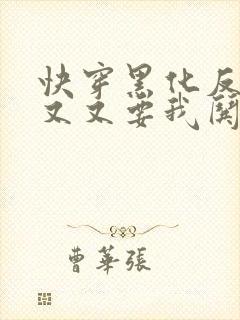 快穿黑化反
又又要我関
曹華張